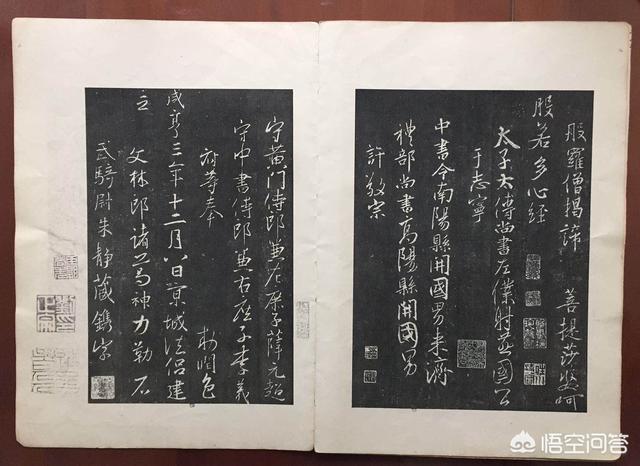 般羅僧揭諦 菩提莎婆呵
般若多心經
太子太傅尚書左僕射燕國公
于志寧
中書令南陽縣開國男來濟
禮部尚書高陽縣開國男
許敬宗
守黃門侍郎兼左庶子薛元超
守中書侍郎兼右庶子李義
府等奉 勅潤色
咸亨三年十二月八日京城法侶建
立
文林郎諸葛神力勒石
武騎尉朱靜藏鐫字
悟空问答